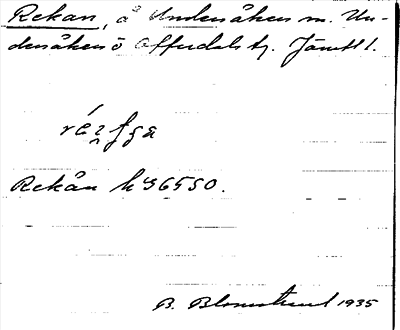 Rekan, å Undersåken m. Un-
dersåkers o Offerdals tg. Jämtl.
Rekån h 36550.
B. Blomstrand 1935